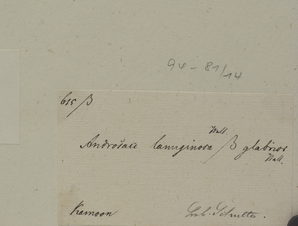 94 - 81/14
615 β
Androsace lanuginosa Wall. β glabrior
Wall.
Kamoon
Hb. Schultes.